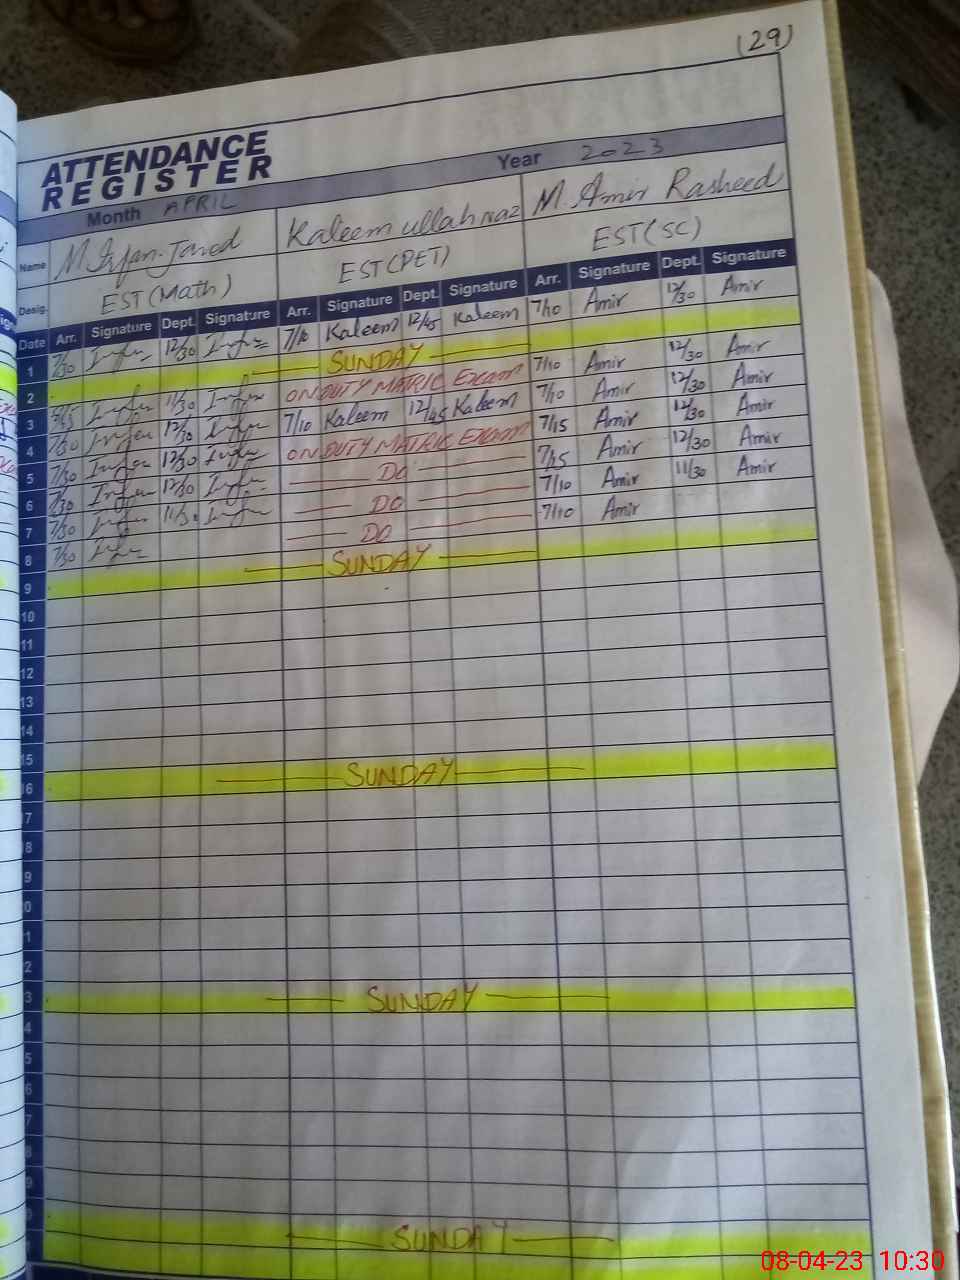 (29)
ATTENDANCE
REGISTER
Month APRIL Year 2023
Name M. Irfan Javed Kaleem ullah naz M. Amir Rasheed
Desig. EST (Math) EST (PET) EST (SC)
Date Arr. Signature Dept. Signature Arr. Signature Dept. Signature Arr. Signature Dept. Signature
1 7/30 12/30 7/10 Kaleem 12/45 Kaleem 7/10 Amir 12/30 Amir
2 SUNDAY
3 11/30 ON DUTY MATRIC Exam 7/10 Amir 12/30 Amir
4 7/30 12/30 7/10 Kaleem 12/45 Kaleem 7/10 Amir 12/30 Amir
5 7/30 12/30 ON DUTY MATRIC Exam 7/15 Amir 12/30 Amir
6 7/30 12/30 DO 7/15 Amir 12/30 Amir
7 7/30 11/30 DO 7/10 Amir 11/30 Amir
8 7/30 DO 7/10 Amir
9 SUNDAY
10
11
12
13
14
15
6 SUNDAY
7
8
9
0
1
2
3 SUNDAY
4
5
6
7
8
9
SUNDAY
08-04-23 10:30